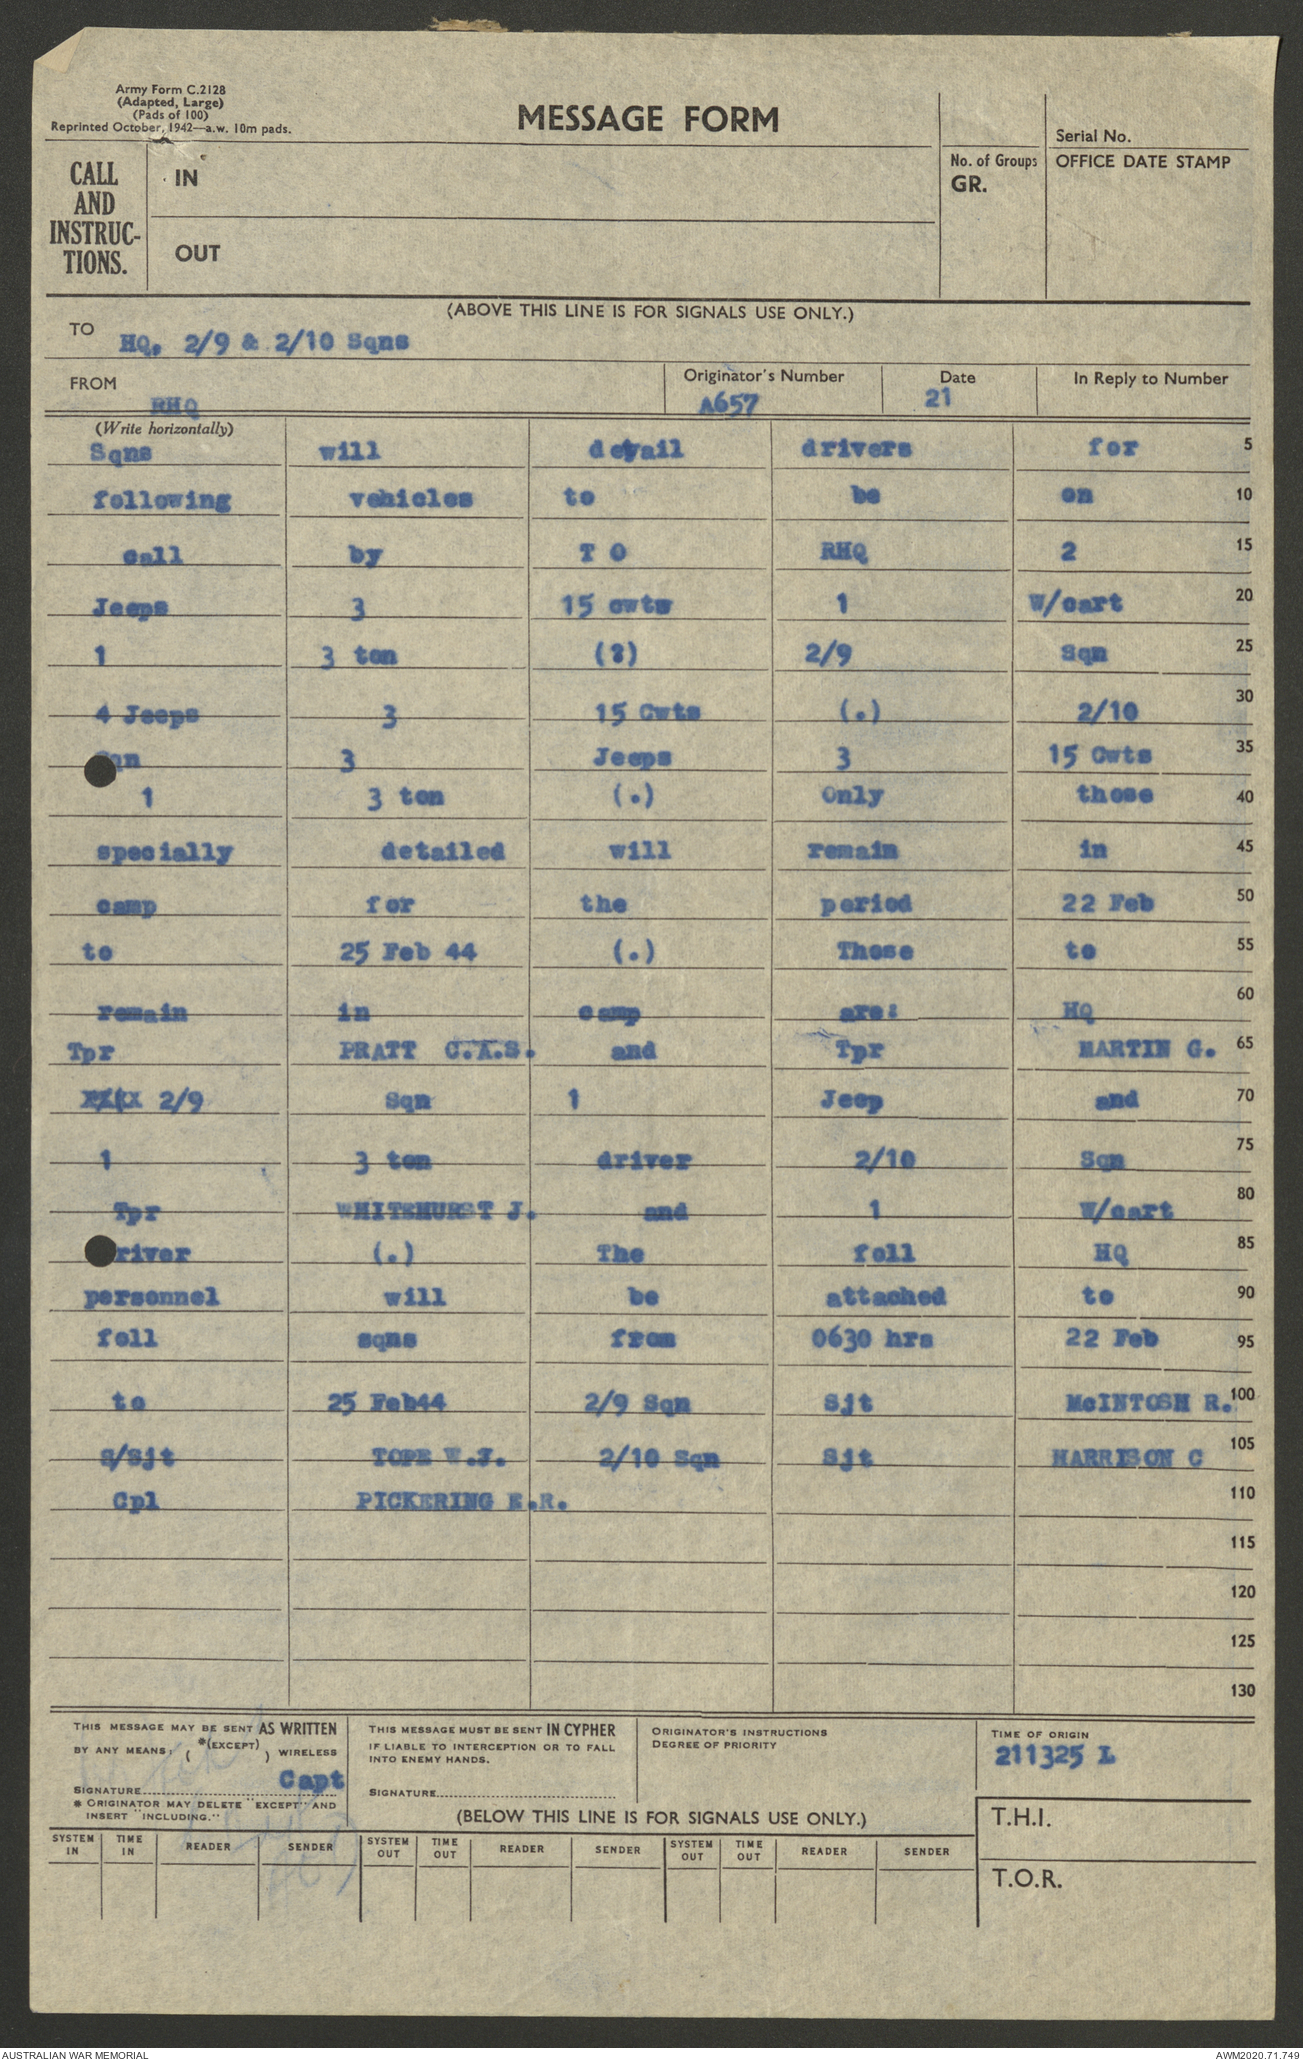 Army Form C.2128
(Adapted, Large)
(Pads of 100)
Reprinted October, 1942—a.w. 10m pads.
MESSAGE FORM
Serial No.
CALL
AND
INSTRUC-
TIONS.
IN
OUT
No. of Groups
GR.
OFFICE DATE STAMP
(ABOVE THIS LINE IS FOR SIGNALS USE ONLY.)
TO HQ, 2/9 & 2/10 Sqns
FROM RHQ
Originator's Number A657
Date 21
In Reply to Number
(Write horizontally)
Sqns will detail drivers for 5
following vehicles to be on 10
call by T O RHQ 2 15
Jeeps 3 15 cwts 1 W/cart 20
1 3 ton (?) 2/9 Sqn 25
4 Jeeps 3 15 Cwts (.) 2/10 30
qn 3 Jeeps 3 15 Cwts 35
1 3 ton (.) Only those 40
specially detailed will remain in 45
camp for the period 22 Feb 50
to 25 Feb 44 (.) Those to 55
remain in camp are: HQ 60
Tpr PRATT C.A.S. and Tpr MARTIN G. 65
2/9 Sqn 1 Jeep and 70
1 3 ton driver 2/10 Sqn 75
Tpr WHITEHURST J. and 1 W/cart 80
river (.) The foll HQ 85
personnel will be attached to 90
foll sqns from 0630 hrs 22 Feb 95
to 25 Feb44 2/9 Sqn Sjt McINTOSH R. 100
S/Sjt TOPE W.J. 2/10 Sqn Sjt HARRISON C 105
Cpl PICKERING E.R. 110
115
120
125
130
THIS MESSAGE MAY BE SENT AS WRITTEN
BY ANY MEANS: ( *(EXCEPT) ) WIRELESS
Capt
SIGNATURE
* ORIGINATOR MAY DELETE "EXCEPT" AND
INSERT "INCLUDING."
THIS MESSAGE MUST BE SENT IN CYPHER
IF LIABLE TO INTERCEPTION OR TO FALL
INTO ENEMY HANDS.
SIGNATURE
ORIGINATOR'S INSTRUCTIONS
DEGREE OF PRIORITY
TIME OF ORIGIN
211325 L
(BELOW THIS LINE IS FOR SIGNALS USE ONLY.)
T.H.I.
T.O.R.
SYSTEM IN TIME IN READER SENDER SYSTEM OUT TIME OUT READER SENDER SYSTEM OUT TIME OUT READER SENDER
AUSTRALIAN WAR MEMORIAL
AWM2020.71.749